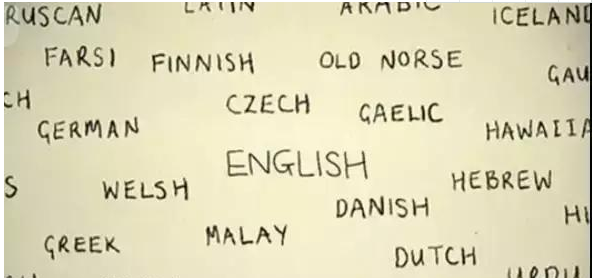 RUSCAN LATIN ARABIC ICELAND
FARSI FINNISH OLD NORSE
GAU
CH CZECH GAELIC
GERMAN HAWAIIA
ENGLISH
S WELSH HEBREW
DANISH HI
GREEK MALAY
DUTCH URDU